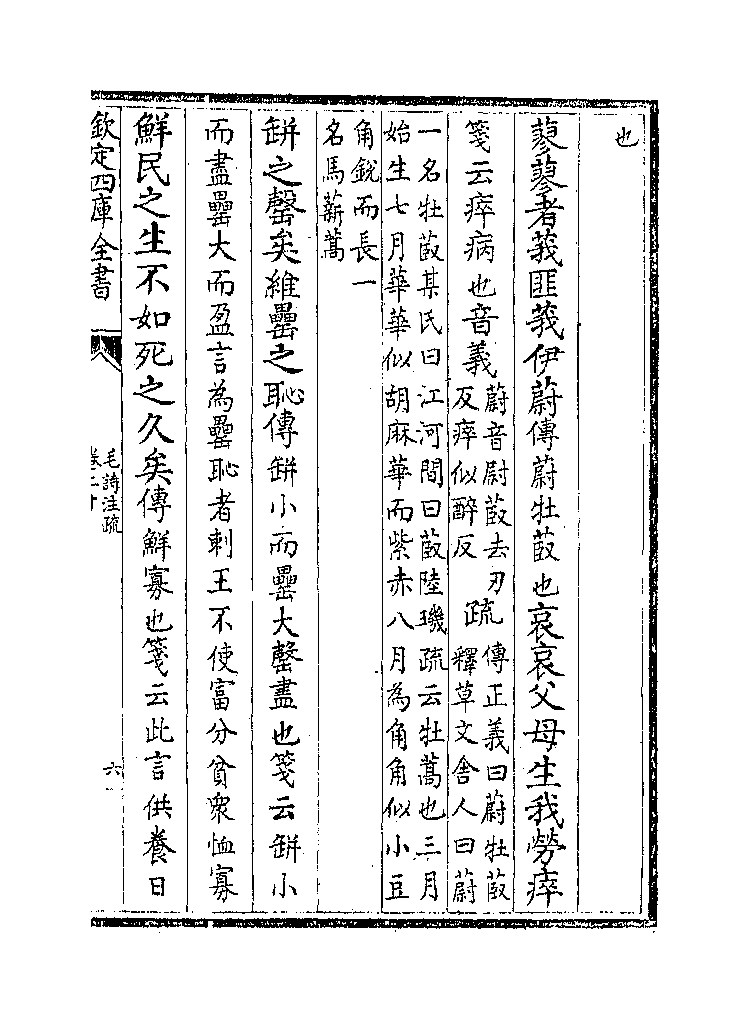 也
蓼蓼者莪匪莪伊蔚傳蔚牡菣也哀哀父母生我勞瘁
箋云瘁病也音義
蔚音尉菣去刃
反瘁似醉反
疏
傳正義曰蔚牡菣
釋草文舍人曰蔚
一名牡菣某氏曰江河間曰菣陸璣疏云牡蒿也三月
始生七月華華似胡麻華而紫赤八月為角角似小豆
角銳而長一
名馬薪蒿
缾之罄矣維罍之恥傳缾小而罍大罄盡也箋云缾小
而盡罍大而盈言為罍恥者刺王不使富分貧衆恤寡
鮮民之生不如死之久矣傳鮮寡也箋云此言供養日
欽定四庫全書
毛詩注疏
卷二十
六